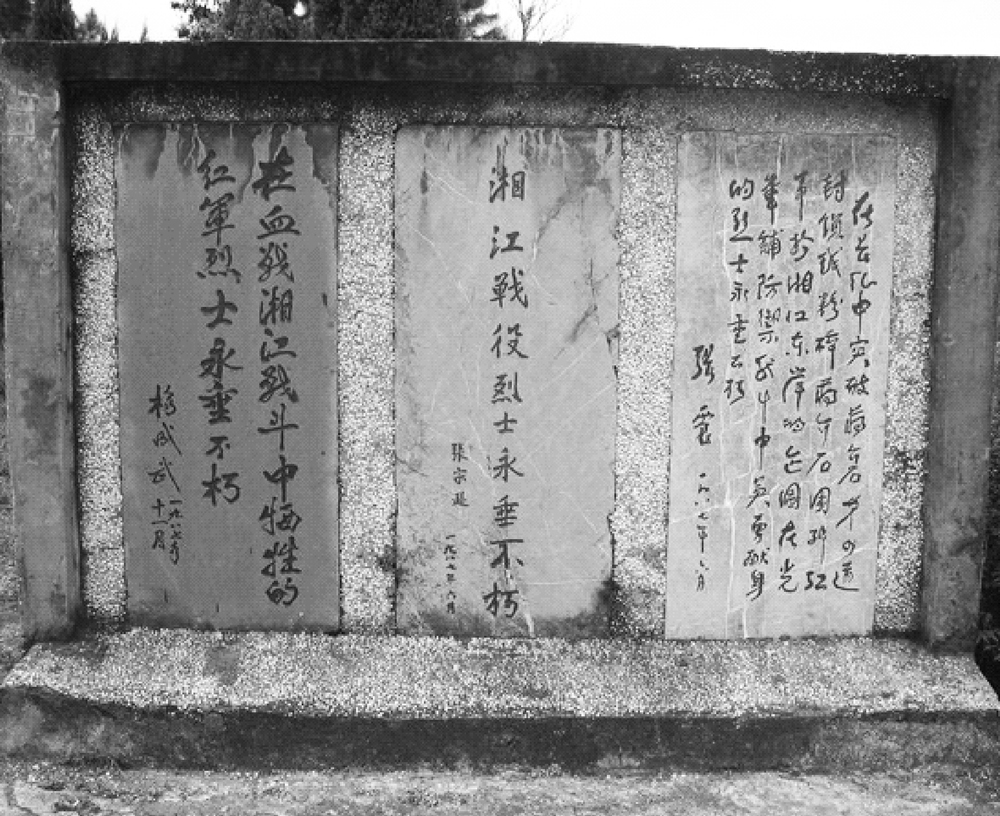 在长征中突破蒋介石第四道
封锁线粉碎蒋介石围歼红
军於湘江东岸的企图在光
华铺防御战斗中英勇献身
的烈士永垂不朽
张震 一九八七年六月
湘江戦役烈士永垂不朽
张宗逊 一九八七年六月
在血战湘江战斗中牺牲的
红軍烈士永垂不朽
杨成武 一九八七年
十一月